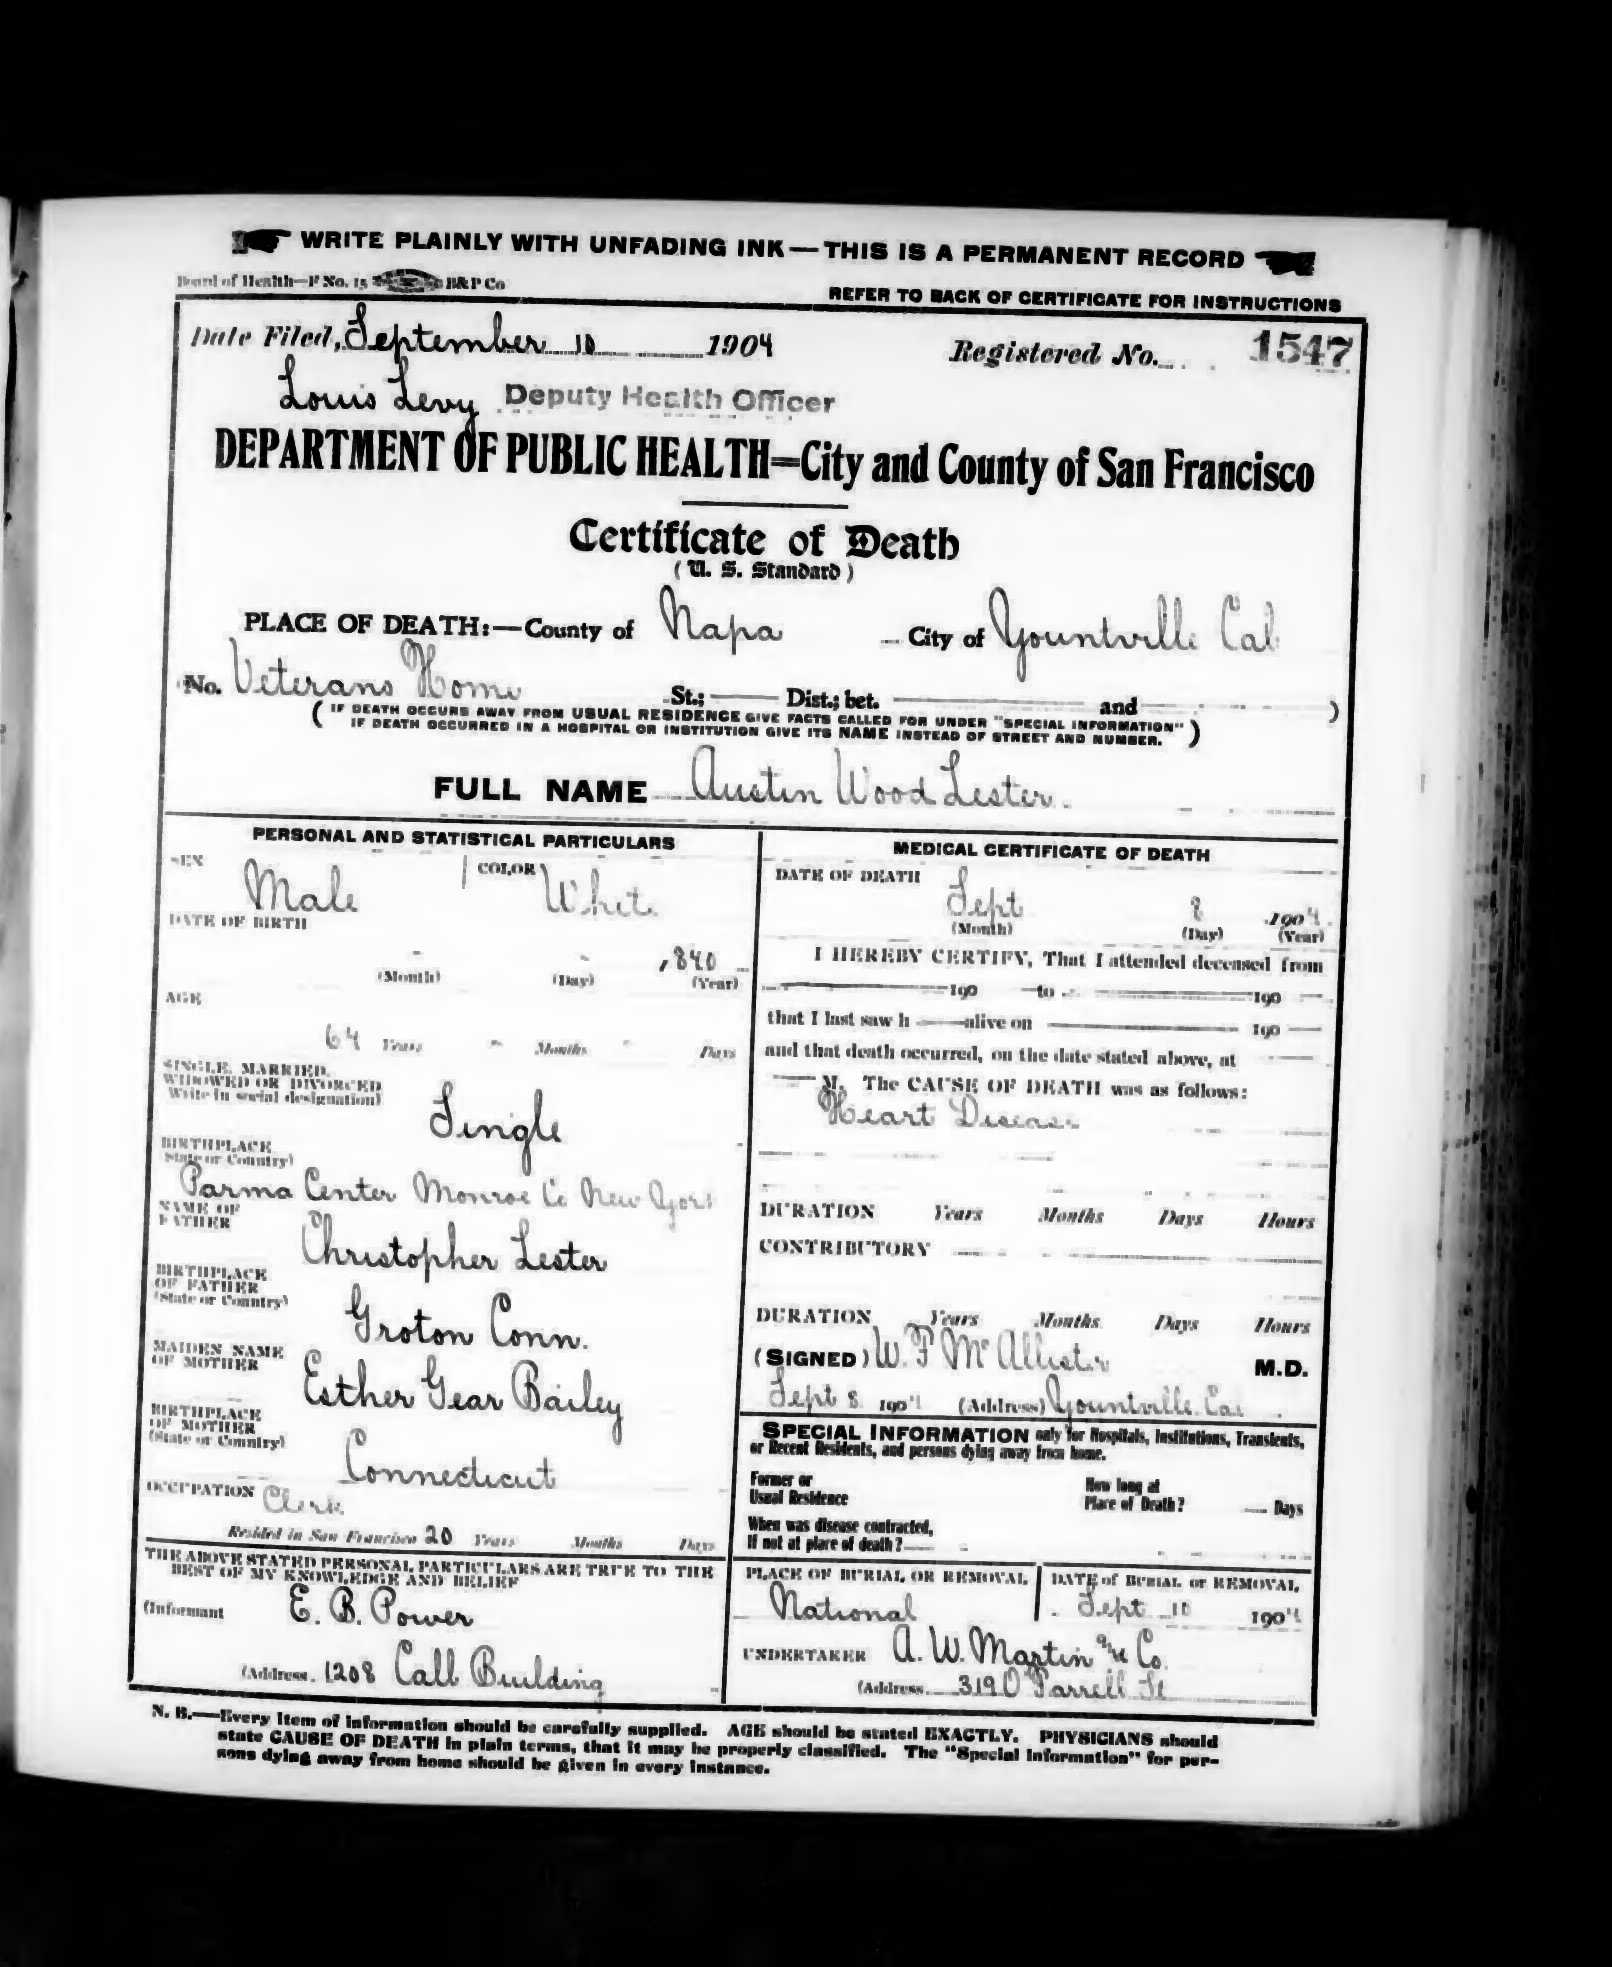 WRITE PLAINLY WITH UNFADING INK—THIS IS A PERMANENT RECORD
Board of Health—F No. 15 B&P Co
REFER TO BACK OF CERTIFICATE FOR INSTRUCTIONS
Date Filed, September 10 1904 Registered No. 1547
Louis Levy Deputy Health Officer
DEPARTMENT OF PUBLIC HEALTH=City and County of San Francisco
Certificate of Death
(U. S. Standard)
PLACE OF DEATH:—County of Napa City of Yountville Cal
No. Veterans Home St.; Dist.; bet. and )
( IF DEATH OCCURS AWAY FROM USUAL RESIDENCE GIVE FACTS CALLED FOR UNDER "SPECIAL INFORMATION" )
IF DEATH OCCURRED IN A HOSPITAL OR INSTITUTION GIVE ITS NAME INSTEAD OF STREET AND NUMBER.
FULL NAME Austin Wood Lester.
PERSONAL AND STATISTICAL PARTICULARS
SEX Male COLOR White
DATE OF BIRTH
1840
(Month) (Day) (Year)
AGE
64 Years Months Days
SINGLE, MARRIED,
WIDOWED OR DIVORCED
Write in social designation)
Single
BIRTHPLACE
State or Country)
Parma Center Monroe Co New York
NAME OF
FATHER
Christopher Lester
BIRTHPLACE
OF FATHER
(State or Country)
Groton Conn.
MAIDEN NAME
OF MOTHER
Esther Gear Bailey
BIRTHPLACE
OF MOTHER
(State or Country)
Connecticut
OCCUPATION Clerk
Resided in San Francisco 20 Years Months Days
THE ABOVE STATED PERSONAL PARTICULARS ARE TRUE TO THE
BEST OF MY KNOWLEDGE AND BELIEF
(Informant E. B. Power
(Address. 1208 Call Building
MEDICAL CERTIFICATE OF DEATH
DATE OF DEATH
Sept 8 1904
(Month) (Day) (Year)
I HEREBY CERTIFY, That I attended deceased from
190 to 190
that I last saw h alive on 190
and that death occurred, on the date stated above, at
M. The CAUSE OF DEATH was as follows:
Heart Disease
DURATION Years Months Days Hours
CONTRIBUTORY
DURATION Years Months Days Hours
(SIGNED) W. F McAllister M.D.
Sept 8 1904 (Address) Yountville. Cal
SPECIAL INFORMATION only for Hospitals, Institutions, Transients,
or Recent Residents, and persons dying away from home.
Former or
Usual Residence
How long at
Place of Death? Days
When was disease contracted,
If not at place of death?
PLACE OF BURIAL OR REMOVAL DATE of BURIAL or REMOVAL
National Sept 10 1904
UNDERTAKER A. W. Martin & Co.
(Address. 319 O'Farrell St
N. B.—Every item of information should be carefully supplied. AGE should be stated EXACTLY. PHYSICIANS should
state CAUSE OF DEATH in plain terms, that it may be properly classified. The "Special Information" for per-
sons dying away from home should be given in every instance.